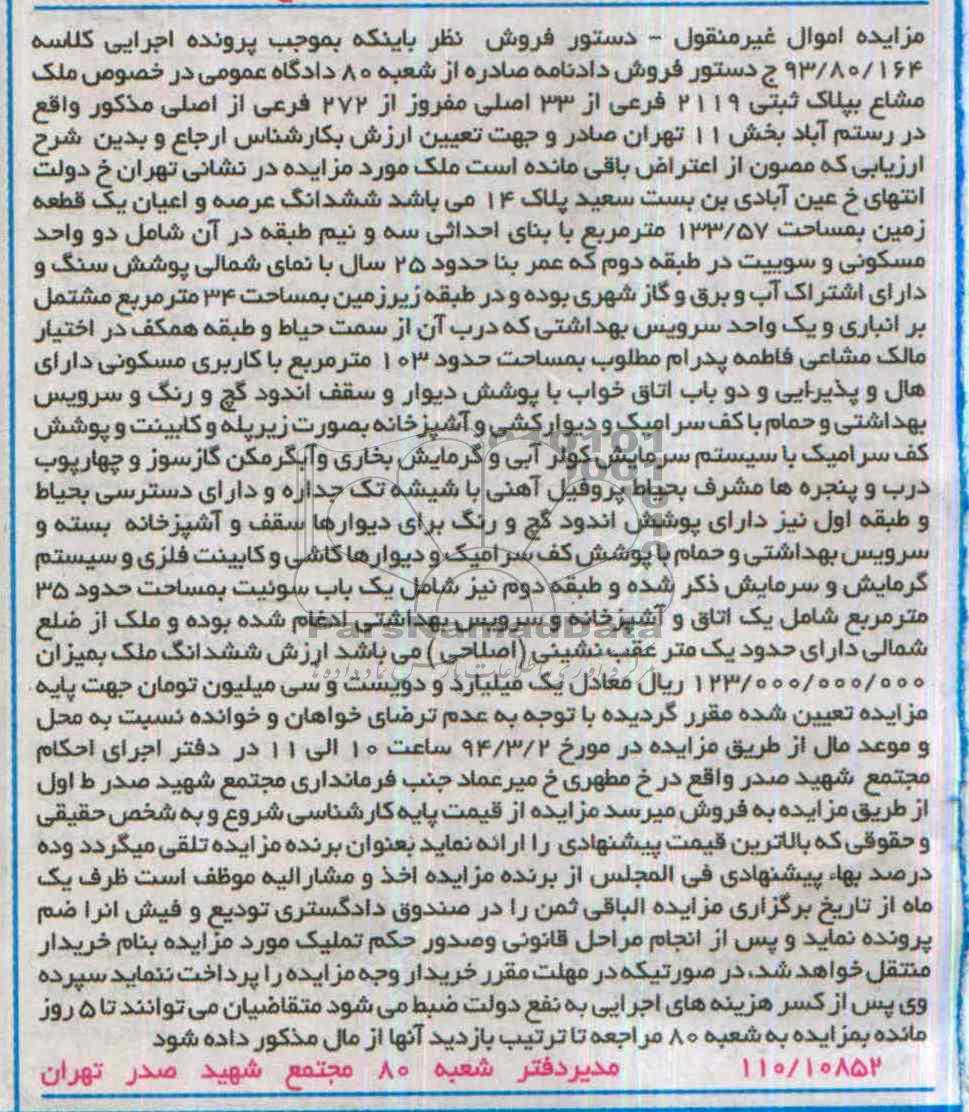 مزایده اموال غیرمنقول - دستور فروش نظر باینکه بموجب پرونده اجرایی کلاسه
۹۳/۸۰/۱۶۴ ج دستور فروش دادنامه صادره از شعبه ۸۰ دادگاه عمومی در خصوص ملک
مشاع بپلاک ثبتی ۲۱۱۹ فرعی از ۳۳ اصلی مفروز از ۲۷۲ فرعی از اصلی مذکور واقع
در رستم آباد بخش ۱۱ تهران صادر و جهت تعیین ارزش بکارشناس ارجاع و بدین شرح
ارزیابی که مصون از اعتراض باقی مانده است ملک مورد مزایده در نشانی تهران خ دولت
انتهای خ عین آبادی بن بست سعید پلاک ۱۴ می باشد ششدانگ عرصه و اعیان یک قطعه
زمین بمساحت ۱۳۳/۵۷ مترمربع با بنای احداثی سه و نیم طبقه در آن شامل دو واحد
مسکونی و سوییت در طبقه دوم که عمر بنا حدود ۲۵ سال با نمای شمالی پوشش سنگ و
دارای اشتراک آب و برق و گاز شهری بوده و در طبقه زیرزمین بمساحت ۳۴ مترمربع مشتمل
بر انباری و یک واحد سرویس بهداشتی که درب آن از سمت حیاط و طبقه همکف در اختیار
مالک مشاعی فاطمه پدرام مطلوب بمساحت حدود ۱۰۳ مترمربع با کاربری مسکونی دارای
هال و پذیرایی و دو باب اتاق خواب با پوشش دیوار و سقف اندود گچ و رنگ و سرویس
بهداشتی و حمام با کف سرامیک و دیوارکشی و آشپزخانه بصورت زیرپله و کابینت و پوشش
کف سرامیک با سیستم سرمایش کولر آبی و گرمایش بخاری وآبگرمکن گازسوز و چهارپوب
درب و پنجره ها مشرف بحیاط پروفیل آهنی با شیشه تک جداره و دارای دسترسی بحیاط
و طبقه اول نیز دارای پوشش اندود گچ و رنگ برای دیوارها سقف و آشپزخانه بسته و
سرویس بهداشتی و حمام با پوشش کف سرامیک و دیوارها کاشی و کابینت فلزی و سیستم
گرمایش و سرمایش ذکر شده و طبقه دوم نیز شامل یک باب سوئیت بمساحت حدود ۳۵
مترمربع شامل یک اتاق و آشپزخانه و سرویس بهداشتی ادغام شده بوده و ملک از ضلع
ParsNamadData
شمالی دارای حدود یک متر عقب نشینی (اصلاحی) می باشد ارزش ششدانگ ملک بمیزان
۱۲۳/۰۰۰/۰۰۰/۰۰۰ ریال معادل یک میلیارد و دویست و سی میلیون تومان جهت پایه
مزایده تعیین شده مقرر گردیده با توجه به عدم ترضای خواهان و خوانده نسبت به محل
و موعد مال از طریق مزایده در مورخ ۹۴/۳/۲ ساعت ۱۰ الی ۱۱ در دفتر اجرای احکام
مجتمع شهید صدر واقع در خ مطهری خ میرعماد جنب فرمانداری مجتمع شهید صدر ط اول
از طریق مزایده به فروش میرسد مزایده از قیمت پایه کارشناسی شروع و به شخص حقیقی
و حقوقی که بالاترین قیمت پیشنهادی را ارائه نماید بعنوان برنده مزایده تلقی میگردد وده
درصد بهاء پیشنهادی فی المجلس از برنده مزایده اخذ و مشارالیه موظف است ظرف یک
ماه از تاریخ برگزاری مزایده الباقی ثمن را در صندوق دادگستری تودیع و فیش انرا ضم
پرونده نماید و پس از انجام مراحل قانونی وصدور حکم تملیک مورد مزایده بنام خریدار
منتقل خواهد شد، در صورتیکه در مهلت مقرر خریدار وجه مزایده را پرداخت ننماید سپرده
وی پس از کسر هزینه های اجرایی به نفع دولت ضبط می شود متقاضیان می توانند تا ۵ روز
مانده بمزایده به شعبه ۸۰ مراجعه تا ترتیب بازدید آنها از مال مذکور داده شود
۱۱۰/۱۰۸۵۲ مدیردفتر شعبه ۸۰ مجتمع شهید صدر تهران